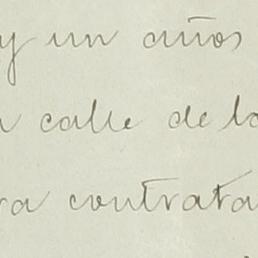 y un años
calle de la
ra contrata